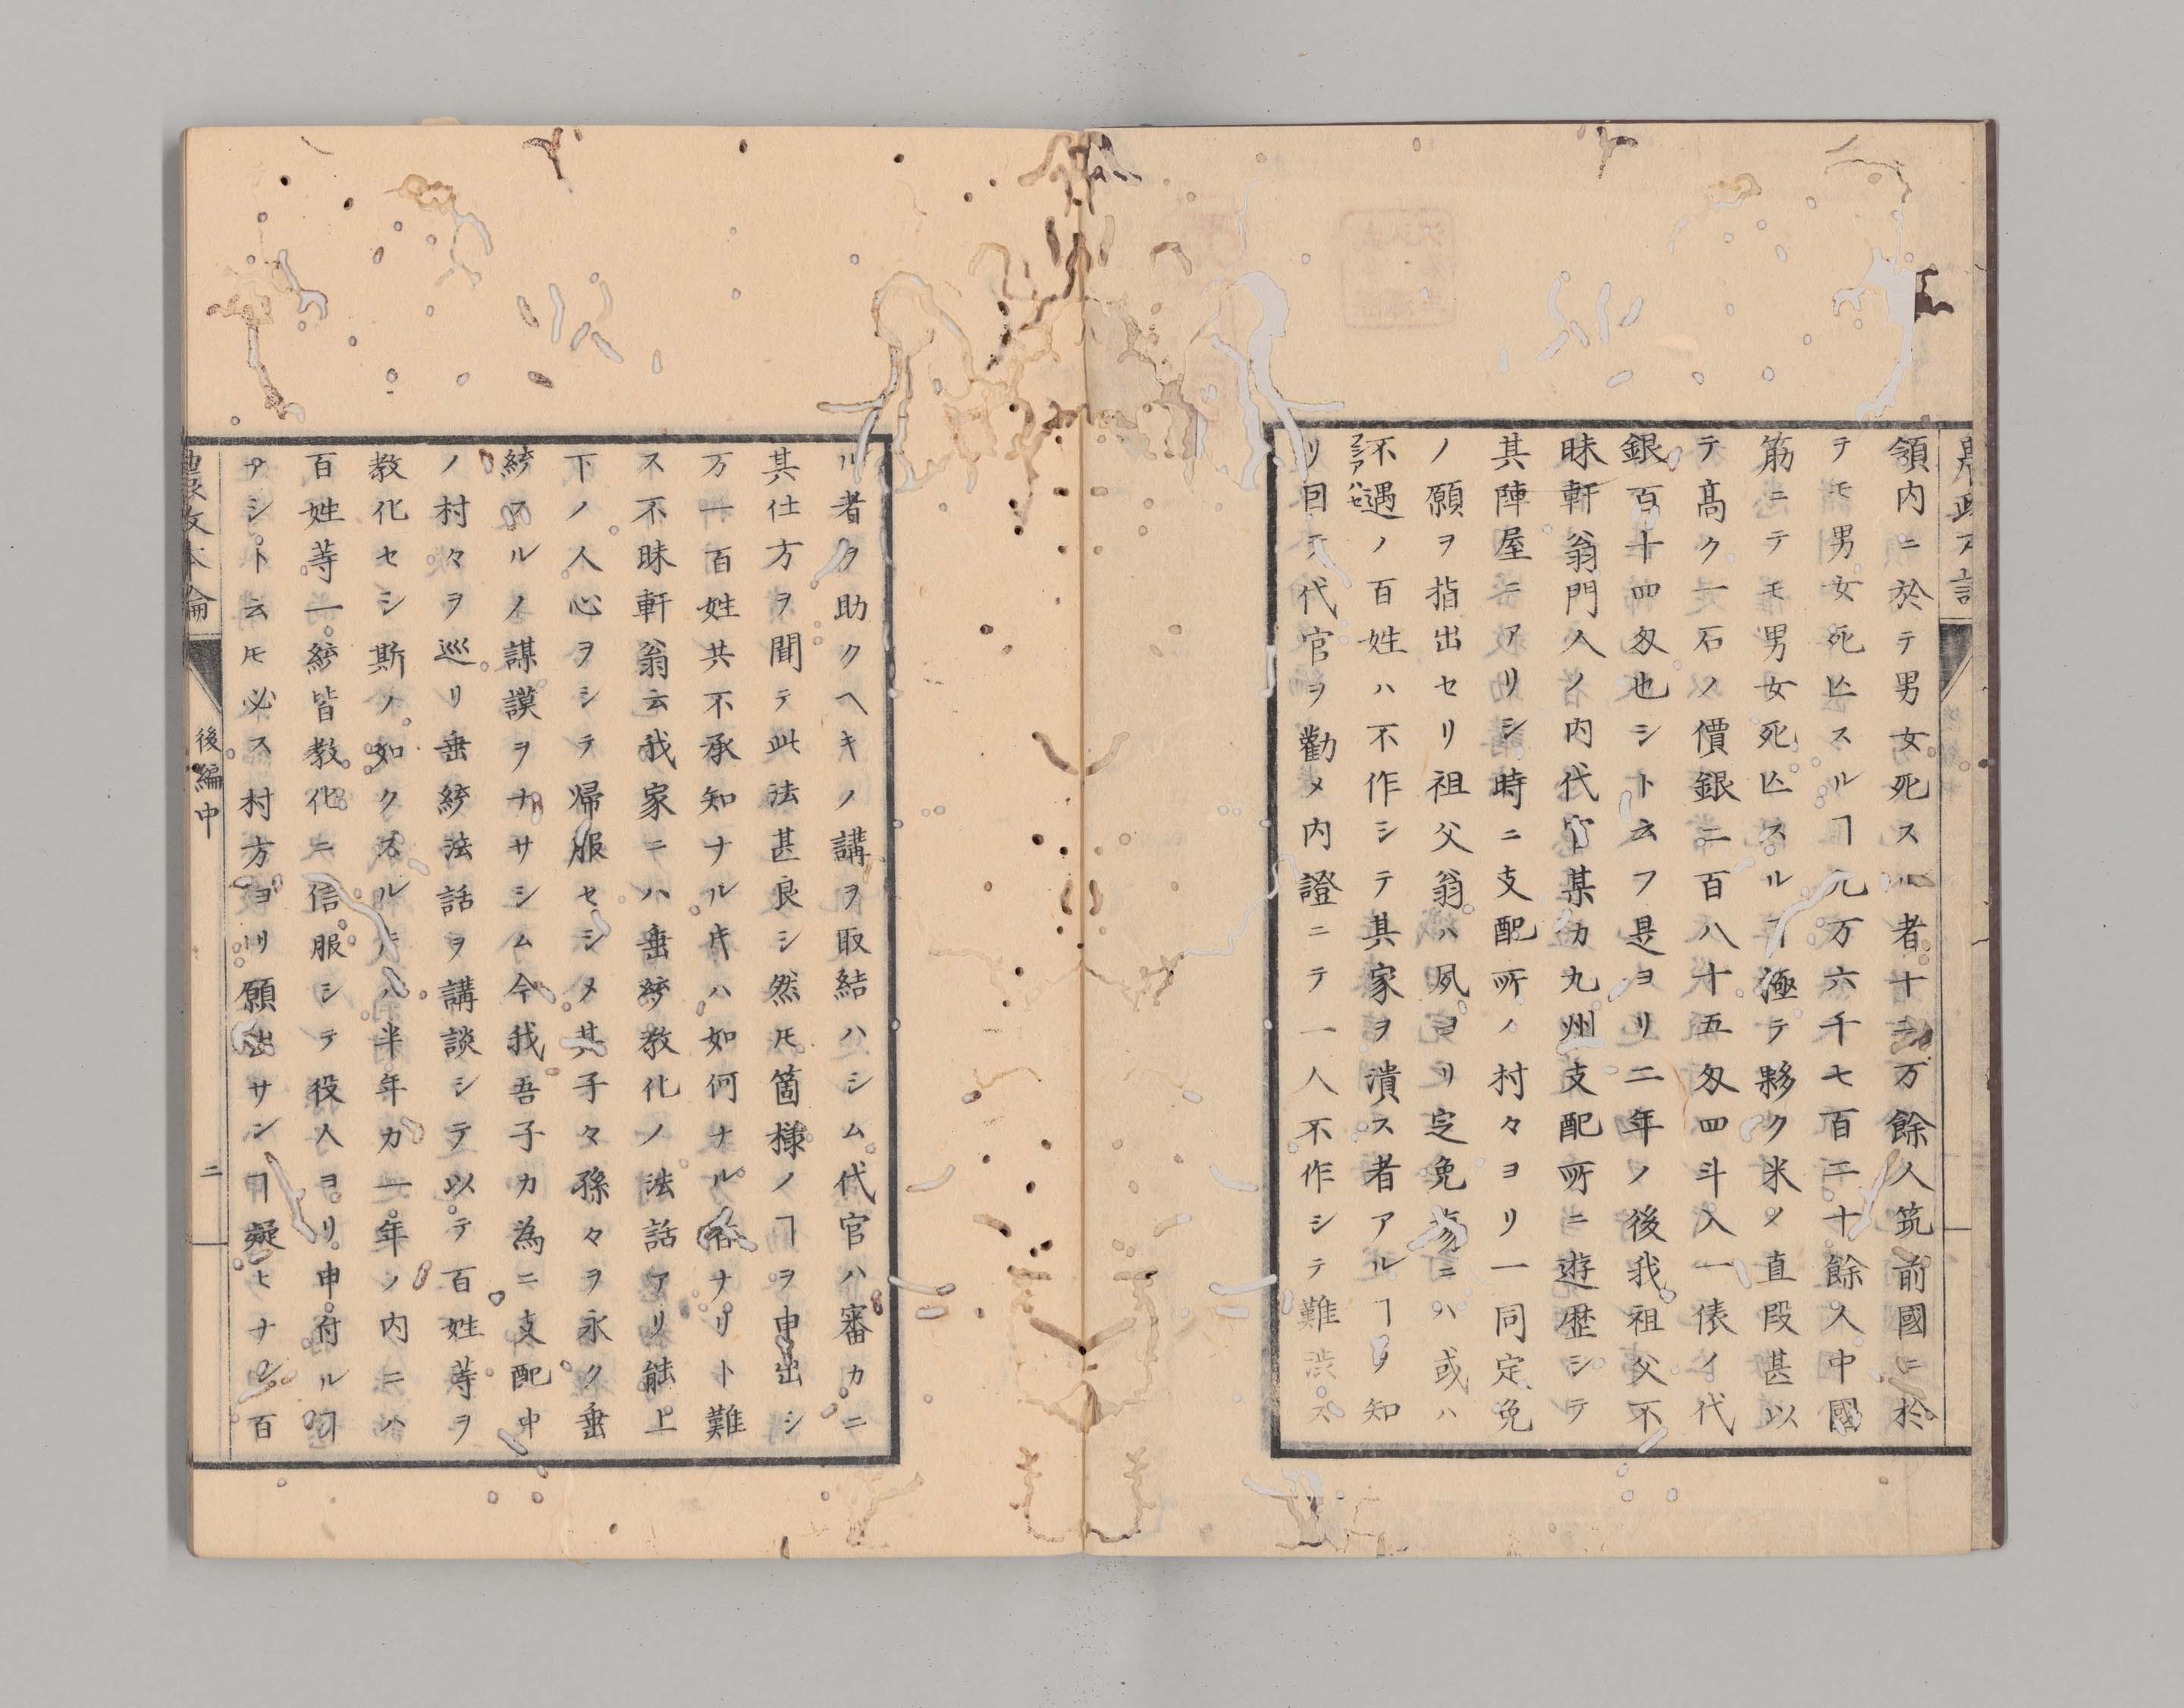 領内ニ於テ男女死スル者十二万餘人筑前國ニ於
テモ男女死亡スルヿ凢万六千七百二十餘人中國
筋ニテモ男女死亡スルヿ極テ夥ク米ノ直段甚以
テ髙ク一石ノ價銀二百八十五匁四斗入一俵ノ代
銀百十四匁也シト云フ是ヨリ二年ノ後我祖父不
昧軒翁門人ノ内代官某カ九州支配所ニ遊歴シテ
其陣屋ニアリシ時ニ支配所ノ村々ヨリ一同定免
ノ願ヲ指出セリ祖父翁ハ夙ヨリ定免 ニハ或ハ
不遇ノ百姓ハ不作シテ其家ヲ潰ス者アルヿヲ知
フシアハセ
リ因テ代官ヲ勸メ内證ニテ一人不作シテ難渋ス
ル者ヲ助クヘキノ講ヲ取結ハシム代官ハ審カニ
其仕方ヲ聞テ此法甚良シ然𪜈箇様ノヿヲ申出シ
万一百姓共不承知ナル𪜈ハ如何ナル ナリト難
ス不昧軒翁云我家ニハ垂統教化ノ法話アリ能上
下ノ人心ヲシテ帰服セシメ其子々孫々ヲ永ク垂
統スルノ謀謨ヲナサシム今我吾子カ為ニ支配中
ノ村々ヲ巡リ垂統法話ヲ講談シテ以テ百姓等ヲ
教化セシ斯ノ如クスル𪜈ハ半年カ一年ノ内ニハ
百姓等一統皆教化ニ信服シテ役人ヨリ申付ルヿ
アシト云𪜈必ス村方ヨリ願出サンヿ疑ヒナシ百
農政本論
後編中
二